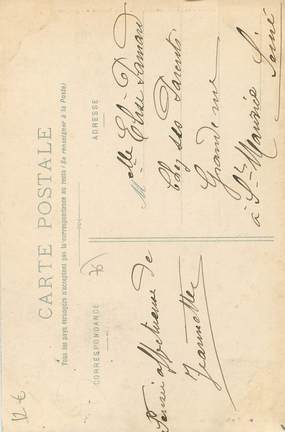 CARTE POSTALE
Tous les pays étrangers n'acceptent pas la correspondance au recto (Se renseigner à la Poste)
CORRESPONDANCE
ADRESSE
76
Pensée affectueuse de
Jeannette
Melle Élise
Chez ses Parents
Grande rue
à St Maurice
Seine
12 €